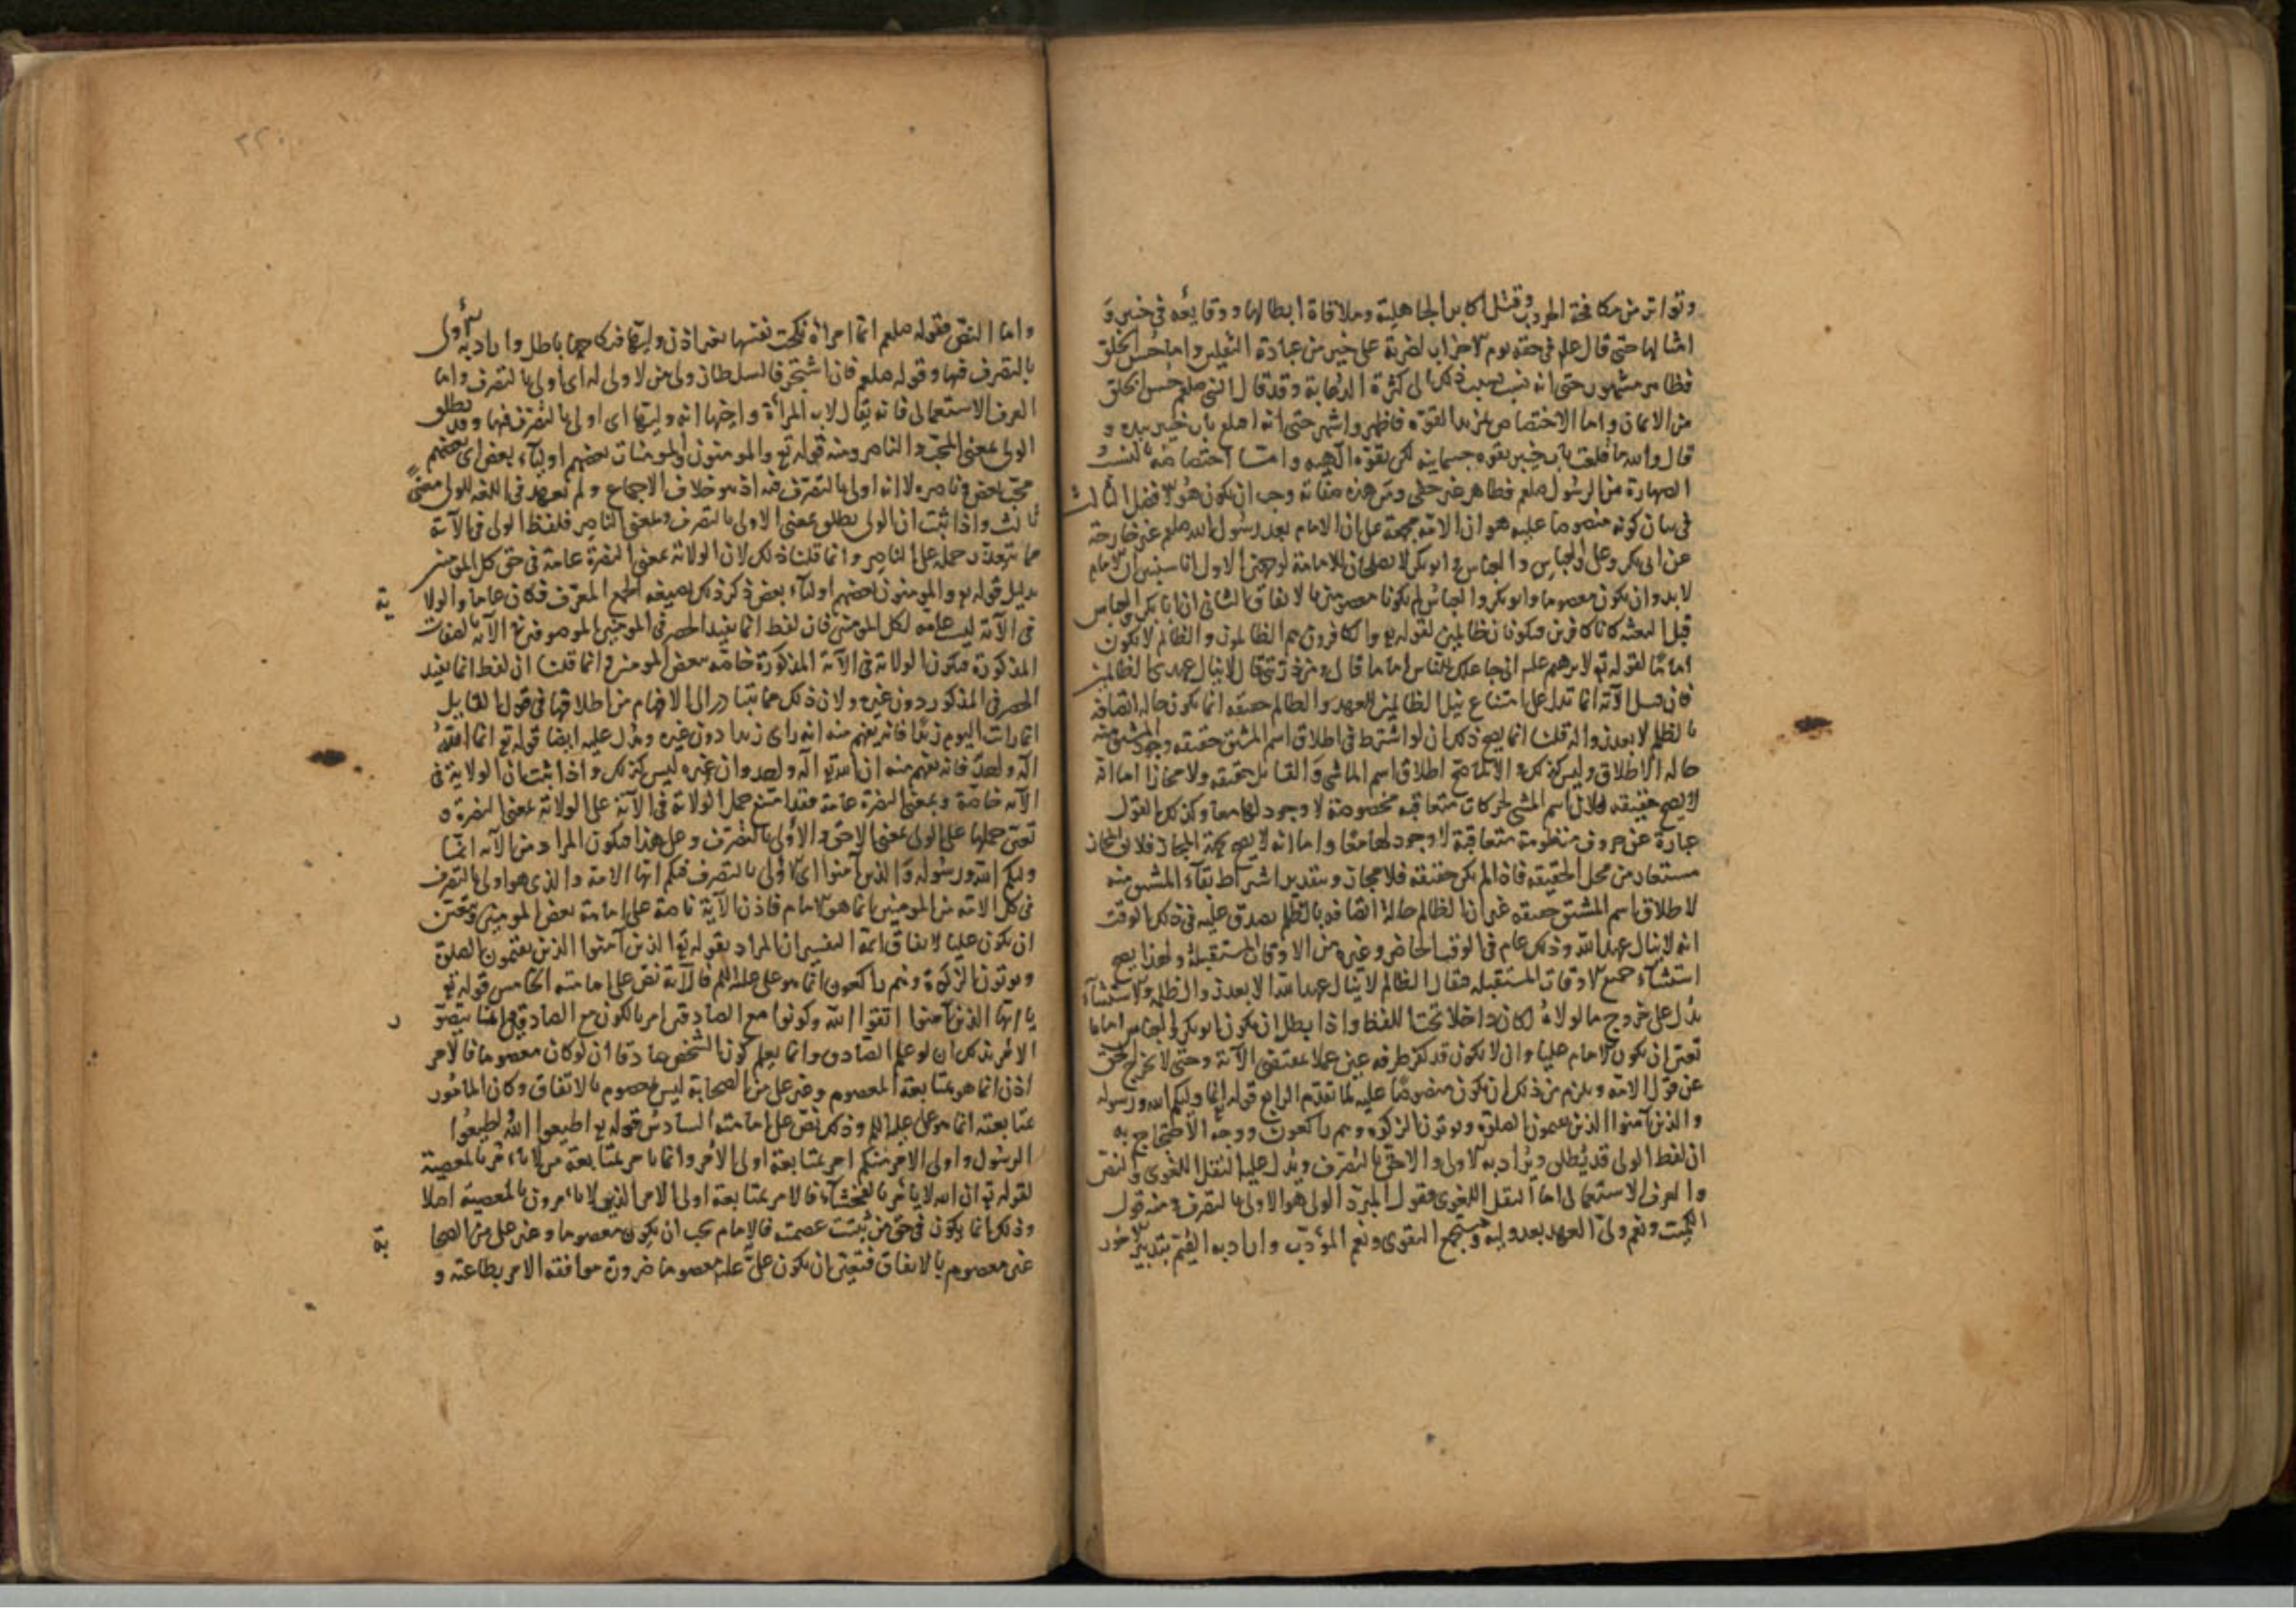 وتواتر من مكافحة الحروب وقتل اكابر الجاهلية وملاقاة ابطالها ووقايعه في خيبر و
امثالها حتى قال علم في حقه يوم الاحزاب لضربة علي خير من عبادة الثقلين واما حسن الخلق
فظاهر مشهور حتى انه نسب بسبب ذلك الى كثرة الدعابة وقد قال النبي صلعم حسن الخلق
من الايمان واما الاختصاص بمزيد القوة فاظهر واشهر حتى انه اقلع باب خيبر بيده و
قال والله ما قلعت باب خيبر بقوة جسمانية لكن بقوة الهية وامـا اختصاصه بالنسب
الصهارة من الرسول صلعم فظاهر غير خفي ومن هذه صفاته وجب ان يكون هو الافضل الثالث
في بيان كونه منصوصا عليه هو ان الامة مجمعة على ان الامام بعد رسول الله صلعم غير خارجة
عن ابي بكر وعلي والعباس والعباس وابو بكر لا يصلحان للامامة لوجهين الاول انا سنبين ان الامام
لا بد وان يكون معصوما وابو بكر والعباس لم يكونا معصومين بالاتفاق الثاني ان ابا بكر والعباس
قبل البعثة كانا كافرين فيكونان ظالمين لقوله تع والكافرون هم الظالمون والظالم لا يكون
اماما لقوله تع لابرهيم علم اني جاعلك للناس اماما قال ومن ذريتي قال لا ينال عهدي الظالمين
فان قيل الآية انما تدل على امتناع نيل الظالمين للعهد والظالم حقيقة انما يكون حالة اتصافه
بالظلم لا بعد زواله قلنا انما يصح ذلك ان لو اشترط في اطلاق اسم المشتق حقيقة وجود المشتق منه
حالة الاطلاق وليس كذلك والا لما صح اطلاق اسم الماشي والقايل حقيقة ولا مجازا اما انه
لا يصح حقيقة فلان اسم المشي لحركات متعاقبة مخصوصة لا وجود لها معا وكذلك القول
عبارة عن حروف منظومة متعاقبة لا وجود لها معا واما انه لا يصح بجهة المجاز فلان المجاز
مستعار من محل الحقيقة فاذا لم يكن حقيقة فلا مجاز وبتقدير اشتراط بقاء المشتق منه
لاطلاق اسم المشتق حقيقة غير ان الظالم حالة اتصافه بالظلم يصدق عليه في ذلك الوقت
انه لا ينال عهد الله وذلك عام في الوقت الحاضر وغيره من الاوقات المستقبلة ولهذا يصح
استثناء جميع الاوقات المستقبلة فيقال الظالم لا ينال عهد الله الا بعد زوال الظلم والاستثناء
يدل على خروج ما لولاه لكان داخلا تحت اللفظ واذا بطل ان يكون ابو بكر والعباس اماما
تعين ان يكون الامام عليا وان لا يكون قد كفر طرفة عين عملا بمقتضى الآية وحتى لا يخرج الحق
عن قول الامة ويلزم من ذلك ان يكون منصوصا عليه لما تقدم الرابع قوله تع انما وليكم الله ورسوله
والذين آمنوا الذين يقيمون الصلوة ويوتون الزكوة وهم راكعون ووجه الاحتجاج به
ان لفظ الولي قد يطلق ويراد به الاولى والاحق بالتصرف ويدل عليه النقل اللغوي والنص
والعرف الاستعمالي اما النقل اللغوي فقول المبرد الولي هو الاولى بالتصرف ومنه قول
الكميت ونعم ولي العهد بعد وليه ومنتجع التقوى ونعم المؤدب واراد به القيم بتدبير الامور
٣٢٠
واما النص فقوله صلعم ايما امراة نكحت نفسها بغير اذن وليها فنكاحها باطل واراد به الاولى
بالتصرف فيها وقوله صلعم فان اشتجر فالسلطان ولي من لا ولي له اي اولى بالتصرف واما
العرف الاستعمالي فانه يقال لاب المرأة واخيها انه وليها اي اولى بالتصرف فيها وقد يطلق
الولي بمعنى المحب والناصر ومنه قوله تع والمومنون والمومنات بعضهم اولياء بعض اي بعضهم
محب بعض وناصره لا انه اولى بالتصرف فيه اذ هو خلاف الاجماع ولم يعهد في اللغة للولي معنى
ثالث واذا ثبت ان الولي يطلق بمعنى الاولى بالتصرف وبمعنى الناصر فلفظ الولي في الآية
مما يتعذر حمله على الناصر وانما قلنا ذلك لان الولاية بمعنى النصرة عامة في حق كل المومنين
بدليل قوله تع والمومنون بعضهم اولياء بعض ذكر ذلك بصيغة الجمع المعرف فكان عاما والولا
ية
في الآية ليست عامة لكل المومنين فان لفظ انما يفيد الحصر في المومنين الموصوفين في الآية بالصفات
المذكورة فيكون الولاية في الآية المذكورة خاصة ببعض المومنين وانما قلنا ان لفظ انما يفيد
الحصر في المذكور دون غيره ولان ذلك مما يتبادر الى الافهام من اطلاقها في قول القايل
انما رايت اليوم زيدا فانه يفهم منه انه راى زيدا دون غيره ويدل عليه ايضا قوله تع انما الله
اله واحد فانه يفهم منه ان الله تع اله واحد وان غيره ليس كذلك واذا ثبت ان الولاية في
الآية خاصة وبمعنى النصرة عامة فقد امتنع حمل الولاية في الآية على الولاية بمعنى النصرة و
تعين حملها على الولي بمعنى الاحق والاولى بالتصرف وعلى هذا فيكون المراد من الآية انما
وليكم الله ورسوله والذين آمنوا اي الاولى بالتصرف فيكم ايها الامة والذي هو اولى بالتصرف
في كل الامة من المومنين انما هو الامام فاذن الآية ناصة على امامة بعض المومنين وتعين
ان يكون عليا لاتفاق ائمة التفسير ان المراد بقوله تع الذين آمنوا الذين يقيمون الصلوة
ويوتون الزكوة وهم راكعون انما هو علي عليه السلم فالآية نص على امامته الخامس قوله تع
يا ايها الذين آمنوا اتقوا الله وكونوا مع الصادقين امر بالكون مع الصادقين وانما يتصو
ر
الامر بذلك ان لو علم الصادق وانما يعلم كون الشخص صادقا ان لو كان معصوما فالامر
اذن انما هو بمتابعة المعصوم وغير علي من الصحابة ليس بمعصوم بالاتفاق وكان المامور
بمتابعته انما هو علي عليه السلم وذلك نص على امامته السادس قوله تع اطيعوا الله واطيعوا
الرسول واولي الامر منكم امر بمتابعة اولي الامر وانما يامر بمتابعة من لا يامر بالمعصية
لقوله تع ان الله لا يامر بالفحشاء فالامر بمتابعة اولي الامر الذين لا يامرون بالمعصية اصلا
وذلك انما يكون في حق من ثبتت عصمته فالامام يجب ان يكون معصوما وغير علي من الصحا
بة
غير معصوم بالاتفاق فتعين ان يكون علي علم معصوما ضرورة موافقة الامر بطاعته و